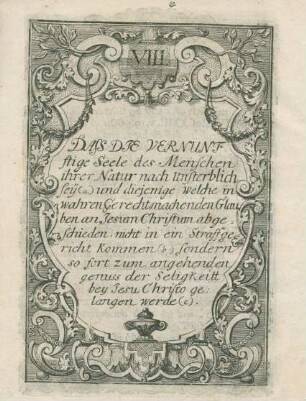 VIII.
DAſS DIE VERNUNF
ftige Seele des Menschen
ihrer Natur nach Unsterblich
seÿ (a) und diejenige welche in
wahren Gerechtmachenden Glau
ben an Jesum Christum abge
schieden nicht in ein Straffge
richt Kommen (b) sondern
so fort zum angehenden
genuss der Seligkeitt
bey Jesu Christo ge:
langen werde (c).